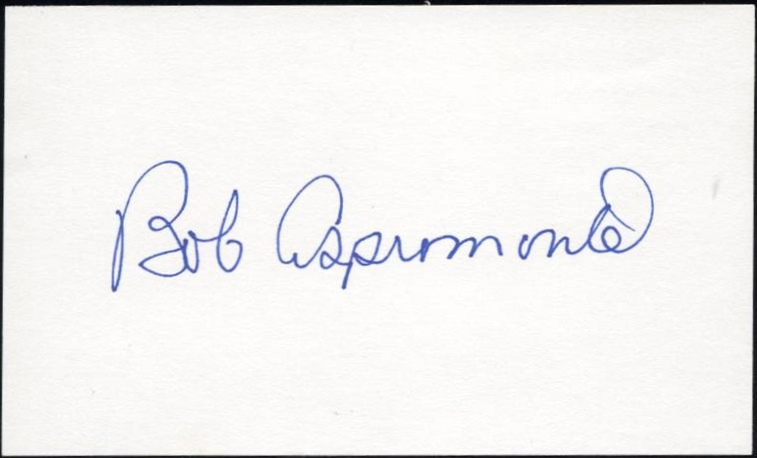 Bob Aspromonte